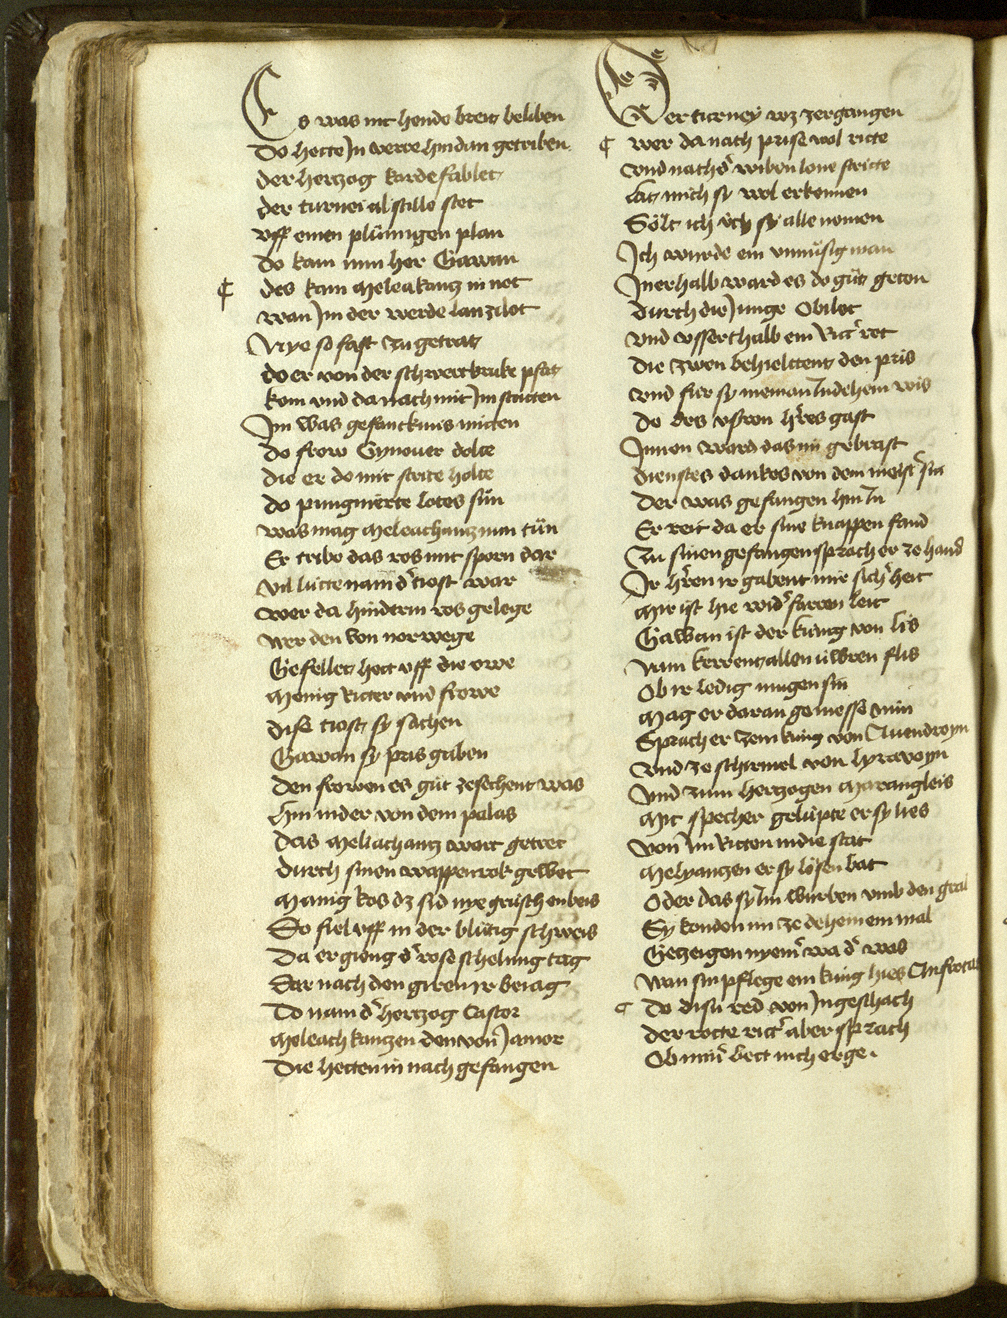 Es was nit hende breit beliben
Do hette Jn verre hindan getriben
der hertzog kardefablet
der turnei al stille stet
vff einen plůmigen plan
do kam nun her Gawan
¶ des kam Meleakantz in not
wan Jm der werde lanzilot
Nye so fast zu getrat
do er von der schwertbruke pfat
kom vnd da nach mit Jm stritten
Jm was gefancknis mitten
do frow Gynouer dolte
die er do mit strite holte
do pungnierte lotes sůn
was mag Meleachantz nun tůn
Er tribe das ros mit sporn dar
vil lútte nam d' tiost war
wer da hinderm ros gelege
wer den von norwege
Gefellet hett vff die owe
Menig ritter vnd frowe
dise tiost sy sachen
Gawan sy pris gaben
den frowen es gůt zesechent was
hin nider von dem palas
das Meliachantz wart getret
durch sinen wappenrok gewet
Manig ros dz sid nye grůsch enbeis
So fiel vff in der blůtig schweis
Da ergieng d' rose schelmig tag
Dar nach den giren ir beiag
Do nam d' hertzog Castor
Meleach kantzen den von Jamor
Die hetten in nach gefangen
Der turney wz zergangen
¶ wer da nach prise wol ritte
vnd nach d' wiben lone stritte
lat mich sy wol erkennen
Sölt ich úch sy alle nennen
Ich wurde ein vnmůsig man
Jnerhalb ward es do gůt geton
durch die Junge Obilot
vnd vsserthalb ein Ritt' rot
die zwen behielttent den pris
vnd fúr sy nieman Jndehein wis
do des vsron h'res gast
Jnnen ward das im gebrast
dienstes dankes von dem meist' sin
Der was gefangen hin Jn
Er reit da er sine knappen fand
Zu sinen gefangen sprach er ze hand
Jr h'ren ir gabent mir sich'heit
Mir ist hie wid' farren leit
Gawan ist der kúng von lis
Nun kerrent allen úwren flis
Ob ir ledig mugen sin
Mag er daran geniesse min
Sprach er zem kúng von Auendroyn
vnd ze schirniel von lyravoyn
vnd zum hertzogen Marangleis
Mit specher gelúpte er sy lies
von Jm ritten in die stat
Melyantzen er sy lösen bat
Oder das sy Jm wurben vmb den gral
Sy konden im ze deheinem mal
Gezeigen nyem' wa d' was
Wan sin pflege ein kúng hies
¶ do disu red von Jn geschach
der rotte ritt' aber sprach
Ob min' bett nich erge